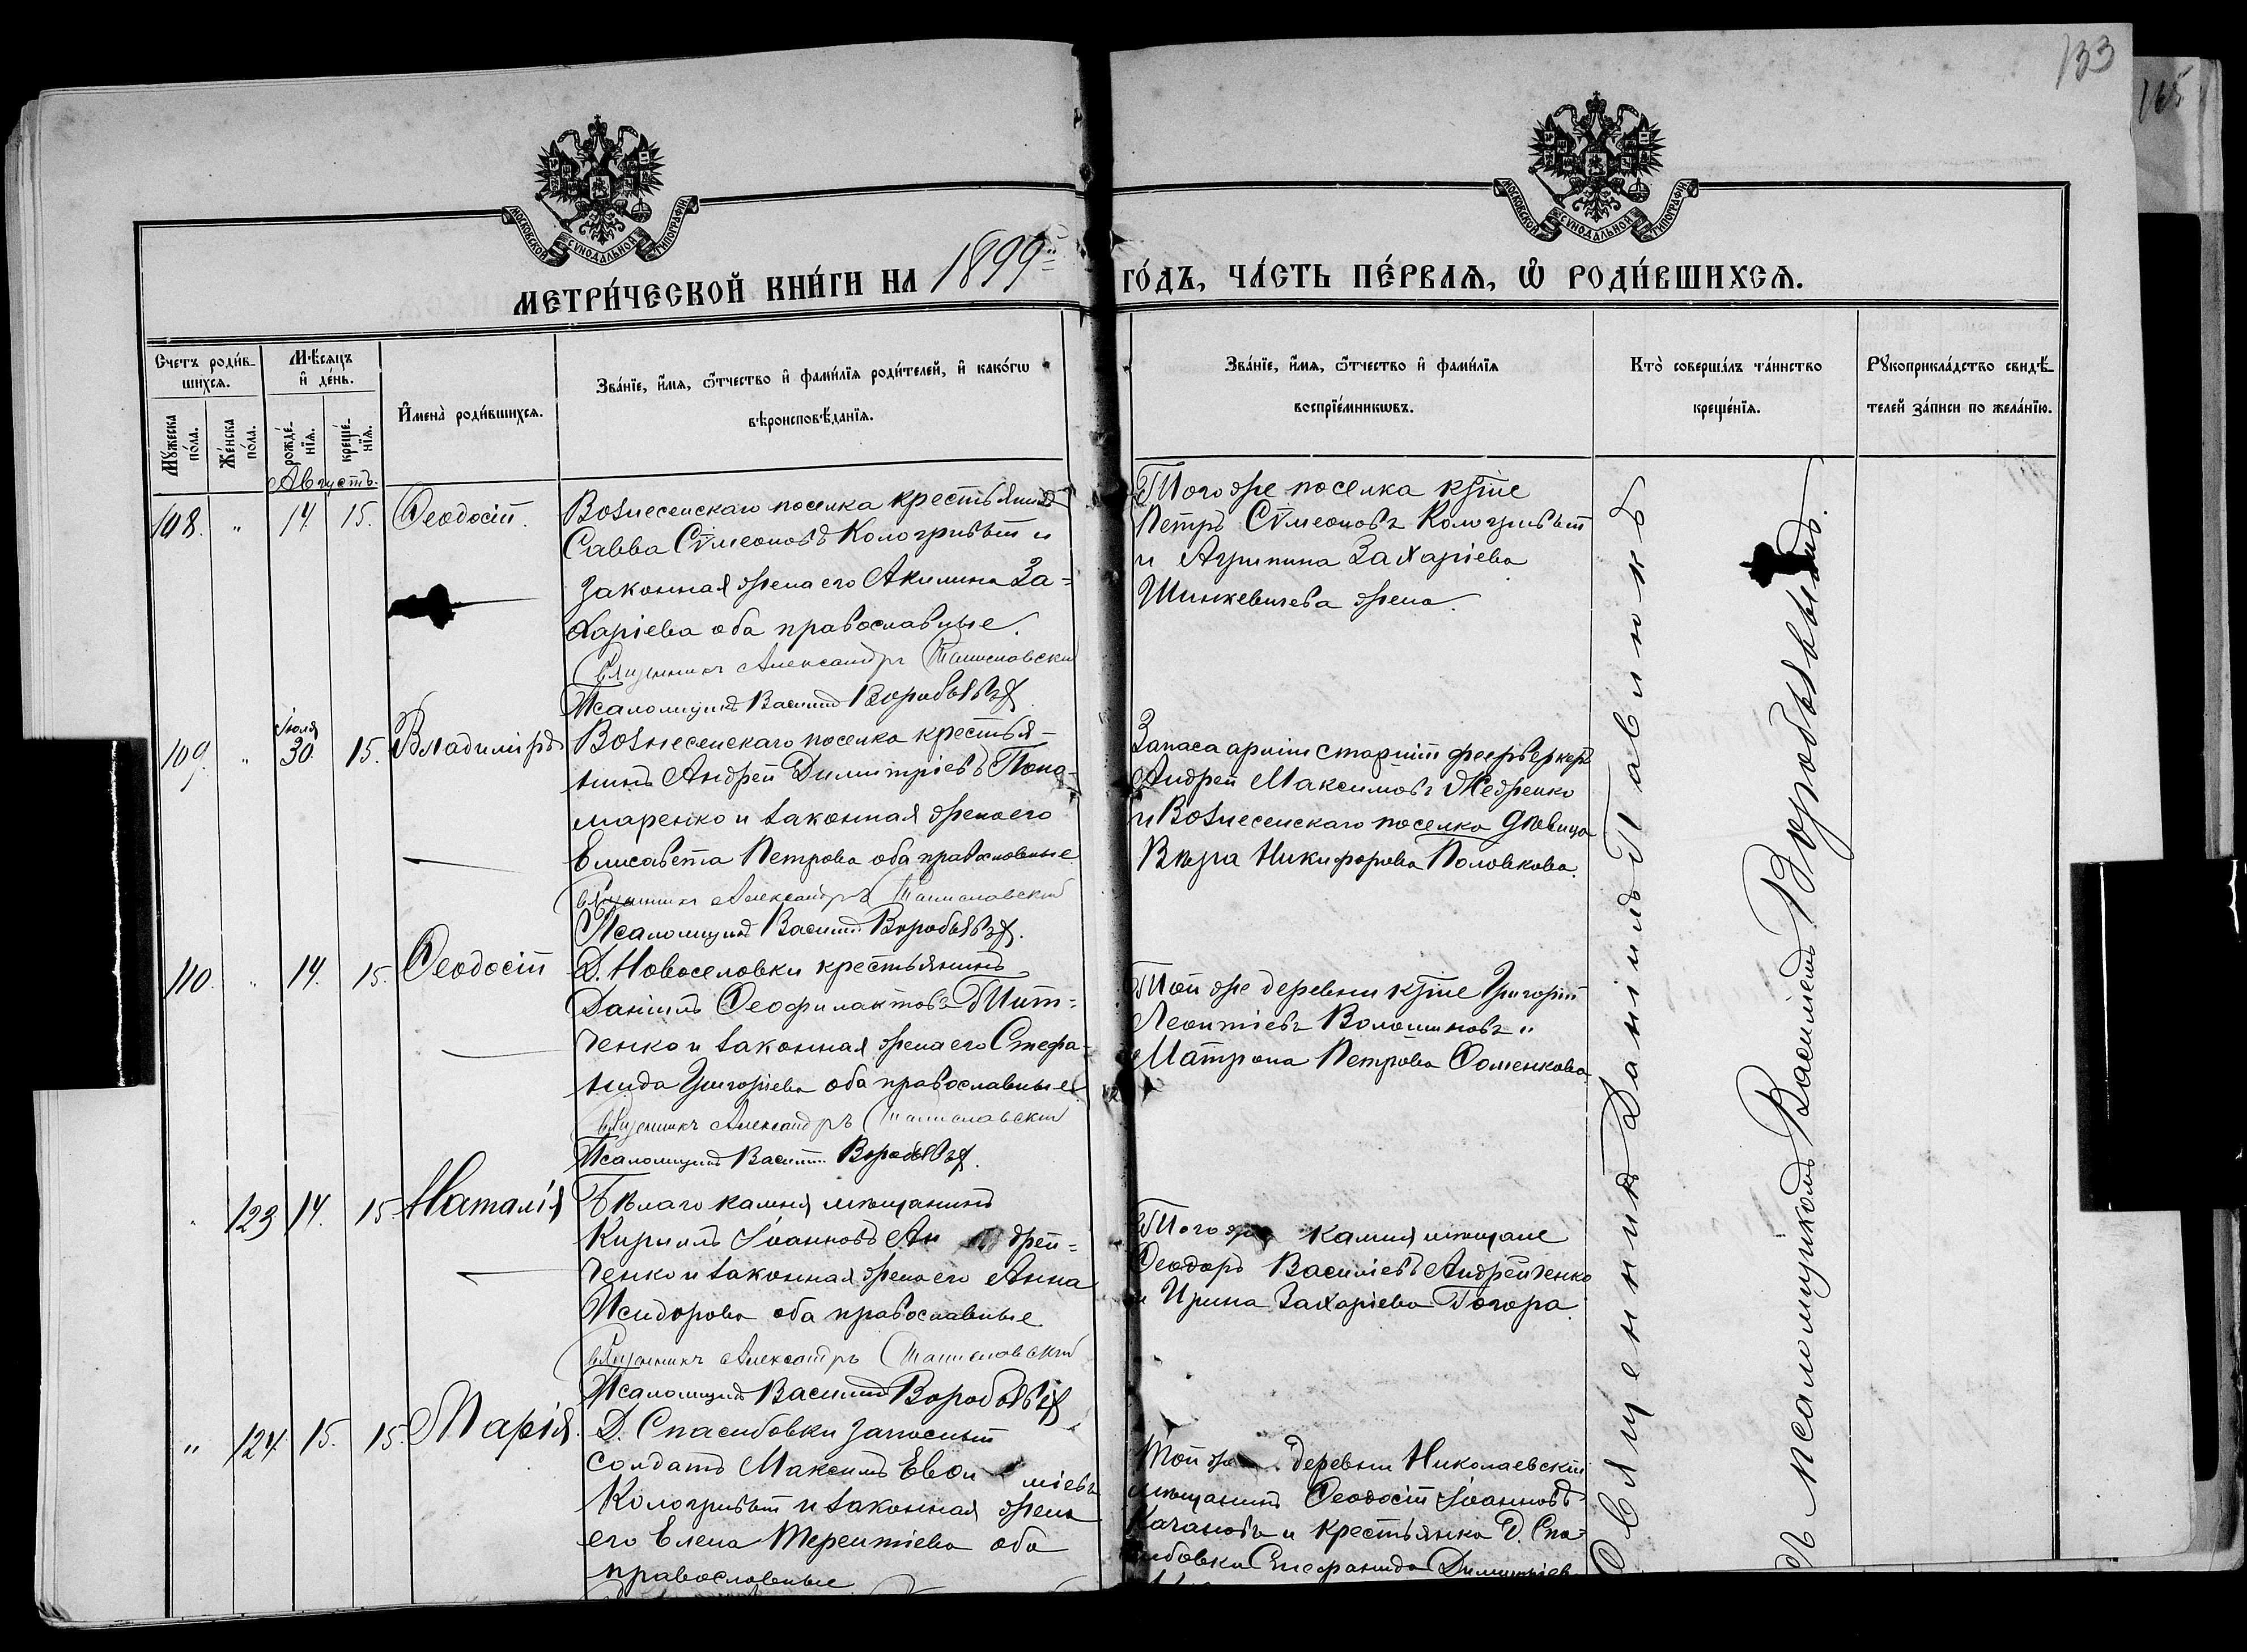 133
165
МОСКОВСКОЙ СѴНОДАЛЬНОЙ ТИПОГРАФІИ
МОСКОВСКОЙ СѴНОДАЛЬНОЙ ТИПОГРАФІИ
МЕТРИ́ЧЕСКОЙ КНИ́ГИ НА 1899й ГО́ДЪ, ЧА́СТЬ ПЕ́РВАѦ, Ѡ҆ РОДИ́ВШИХСѦ.
Счетъ роди́в-
шихсѧ.
Мꙋ́жеска по́ла.
Же́нска по́ла.
Мѣ́сѧцъ
и҆ де́нь.
рожде́-
нїѧ.
креще́-
нїѧ.
И҆мена̀ роди́вшихсѧ.
Зва́нїе, и҆́мѧ, ѻ҆́тчество и҆ фами́лїѧ роди́телей, и҆ како́гѡ
вѣроисповѣ́данїѧ.
Зва́нїе, и҆́мѧ, ѻ҆́тчество и҆ фами́лїѧ
воспрїе́мникѡвъ.
Кто̀ соверша́лъ та́инство
креще́нїѧ.
Рꙋкоприкла́дство свидѣ́-
телей за́писи по жела́нїю.
Августъ.
108. " 14 15. Ѳеодосій.
Вознесенскаго поселка крестьянинъ
Савва Сѵмеоновъ Кологривый и
законная жена его Акилина За=
харіева оба православные.
Священникъ Александръ Станиславскій
Псаломщикъ Василій Воробьевъ
Того же поселка кр̃не
Петръ Сѵмеоновъ Кологривый
и Агрипина Захаріева
Шинкевичева жена.
109. " Іюля 30. 15. Владиміръ
Вознесенскаго поселка крестья-
нинъ Андрей Димитріевъ Поно-
маренко и законная жена его
Елисавета Петрова оба православные
Священникъ Александръ Станиславскій
Псаломщикъ Василій Воробьевъ.
Запаса арміи старшій феерверкеръ
Андрей Максимовъ Жедренко
и Вознесенскаго поселка девица
Вѣра Никифорова Половкова.
110. " 14. 15. Ѳеодосій
Д. Новоселовки крестьянинъ
Даніилъ Ѳеофилактовъ Тит=
ченко и законная жена его Стефа-
нида Григоріева оба православные
Священникъ Александръ Станиславскій
Псаломщикъ Василій Воробьевъ.
Той же деревни кр̃не Григорій
Леонтіевъ Волошиновъ и
Матрона Петрова Ѳоменкова.
" 123 14. 15. Наталія
Бѣлаго камня мѣщанинъ
Кириллъ Іоанновъ Андрей=
ченко и законная жена его Анна
Исидорова оба православные
Священникъ Александръ Станиславскій
Псаломщикъ Василій Воробьевъ
Того же камня мѣщане
Ѳеодоръ Василіевъ Андрейченко
и Ирина Захаріева Погора.
" 124. 15. 15. Марія.
Д. Спасибовки запасный
солдатъ Максимъ Евѳиміевъ
Кологривый и законная жена
его Елена Терентіева оба
православные
Той же деревни Николаевскій
мѣщанинъ Ѳеодосій Іоанновъ
Качановъ и крестьянка Д. Спа-
сибовки Стефанида Димитріев
Священникъ Даніилъ Павлюкъ
съ псаломщикомъ Василіемъ Воробьевымъ.